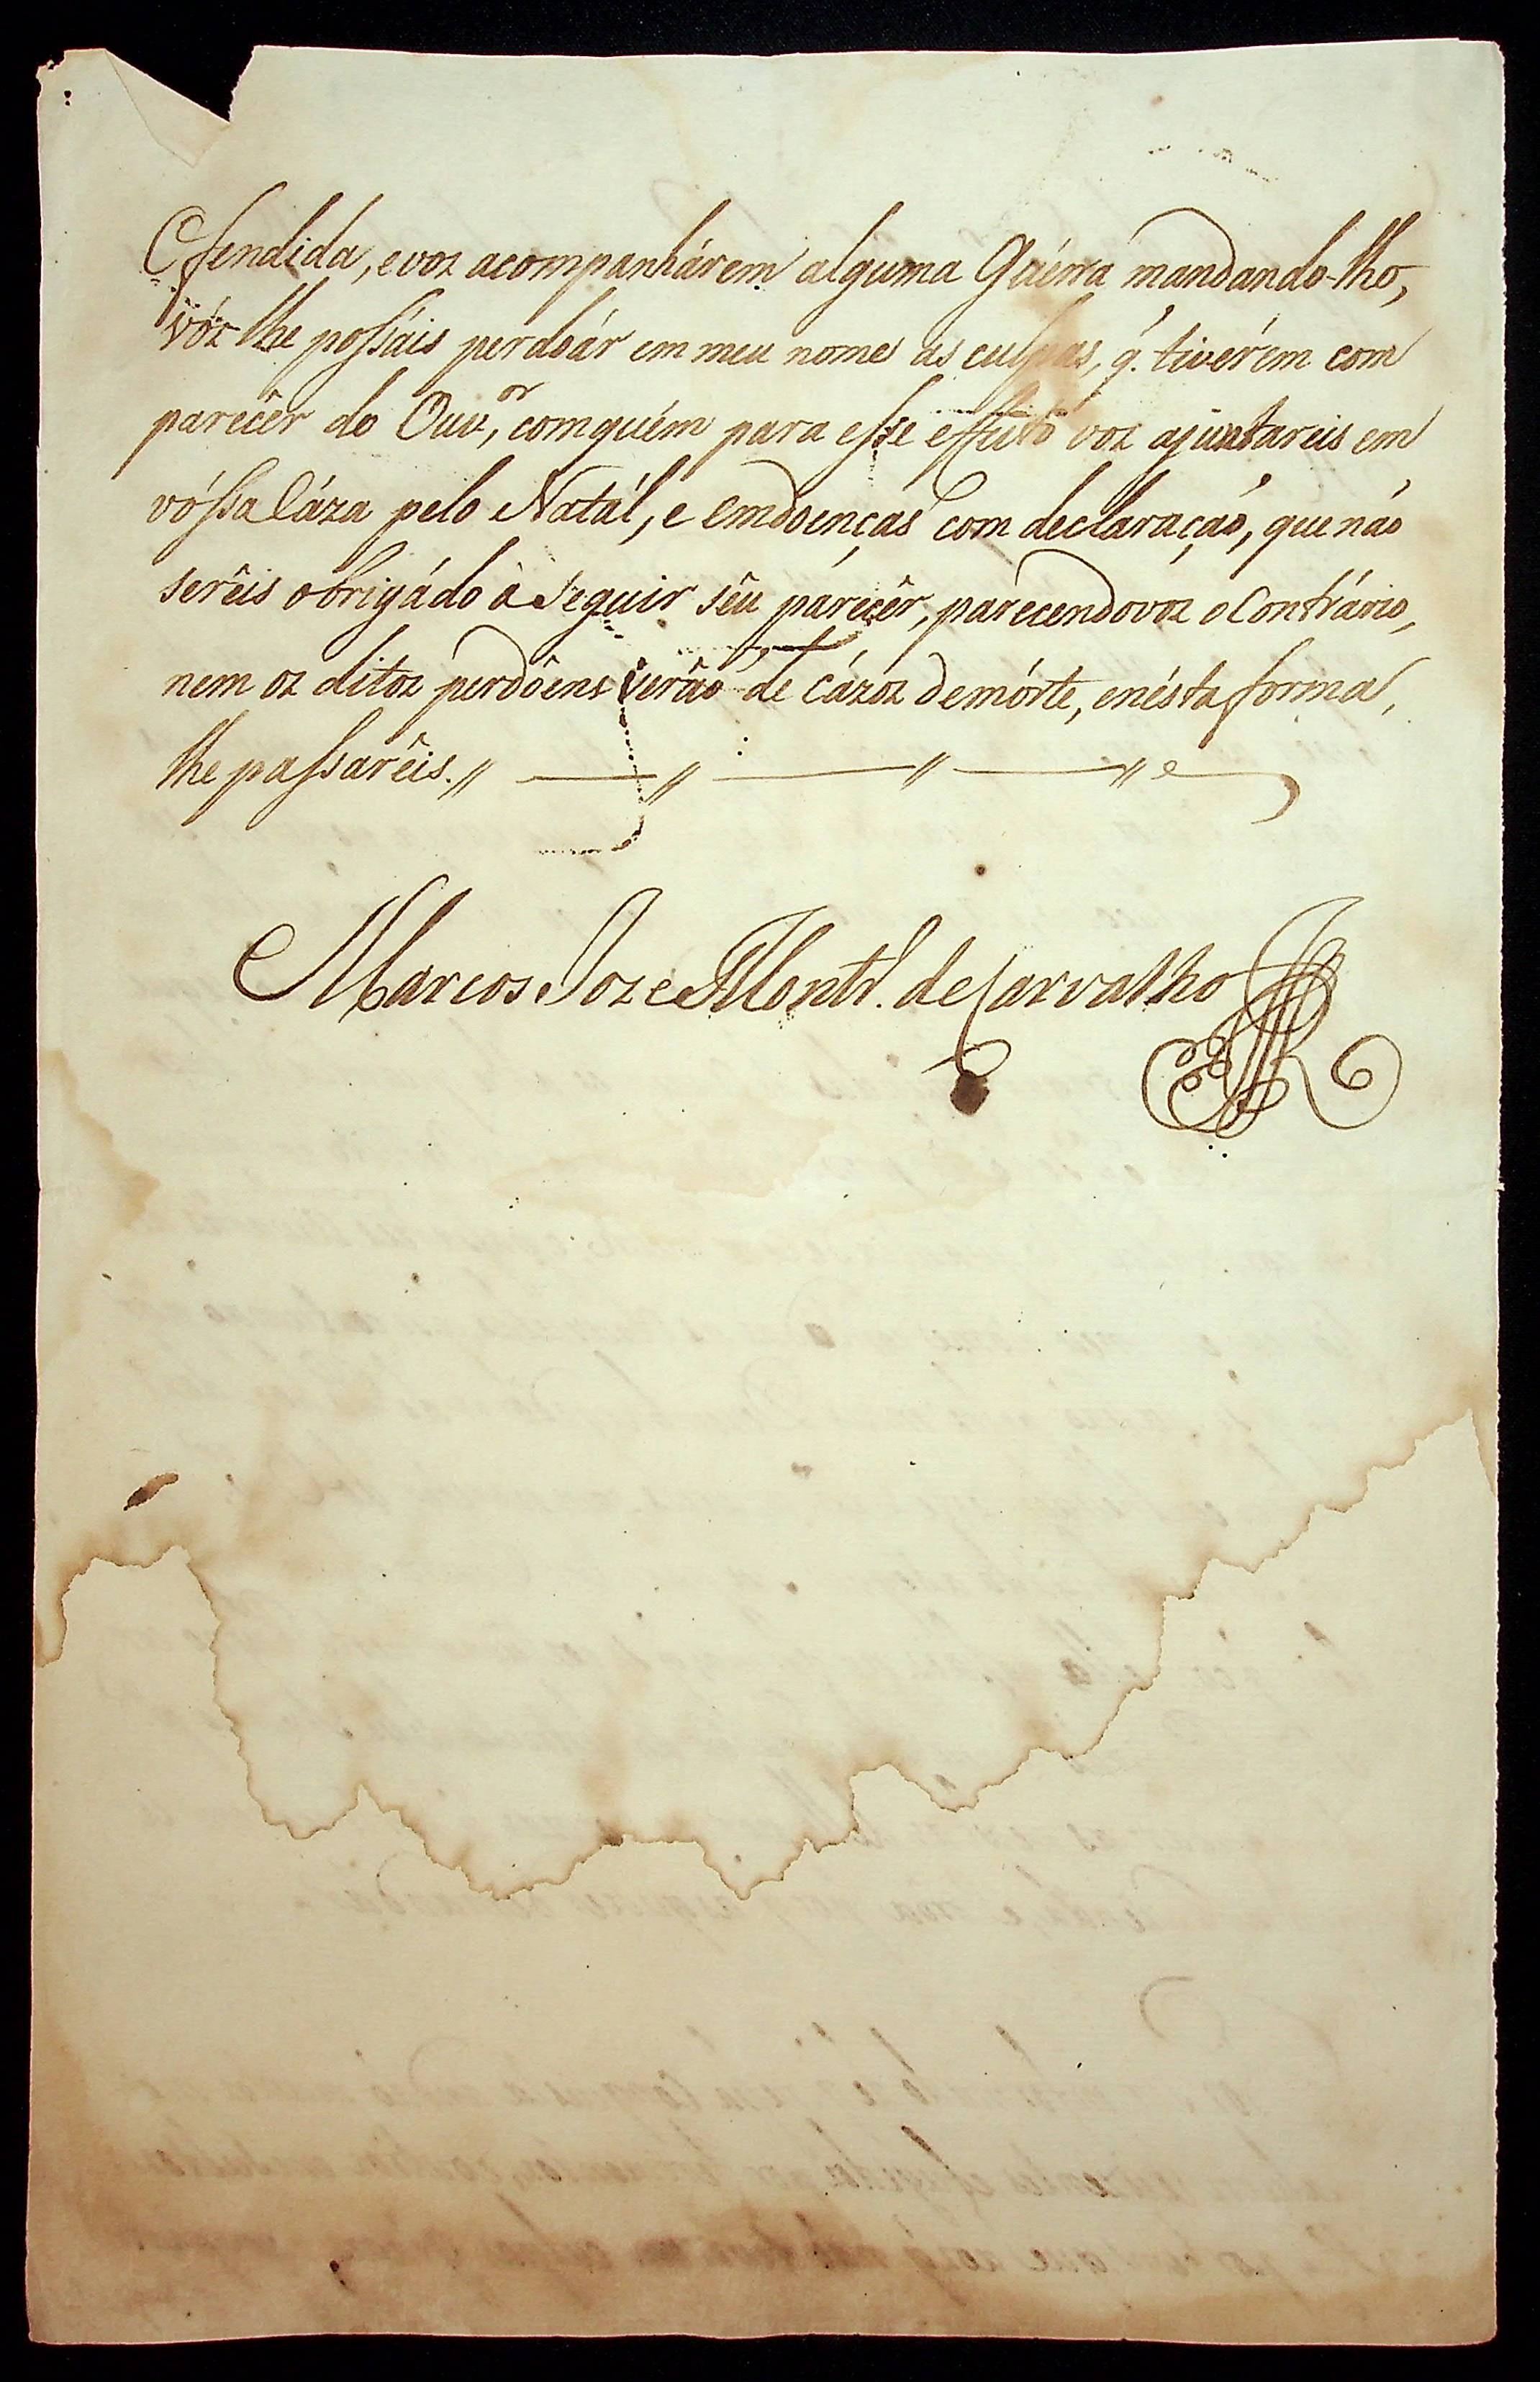 Ofendida, e voz acompanhárem alguma Guérra mandando-lho,
vóz lhe poſsáis perdoár em meu nome as culpas, q̃. tivérem com
parecêr do Ouv.or, com quém para eſse effeito voz ajuntareis em
vóſsa Cáza pelo Natál, e Emdoenças com declaração, que não
serêis obrigádo à seguir sêu parecêr, parecendovoz o Contrário,
nem oz ditoz perdôens serâo de Cázoz de mórte, e nésta forma,
lhe paſsarêis. //
Marcos Joze Montr.º de Carvalho